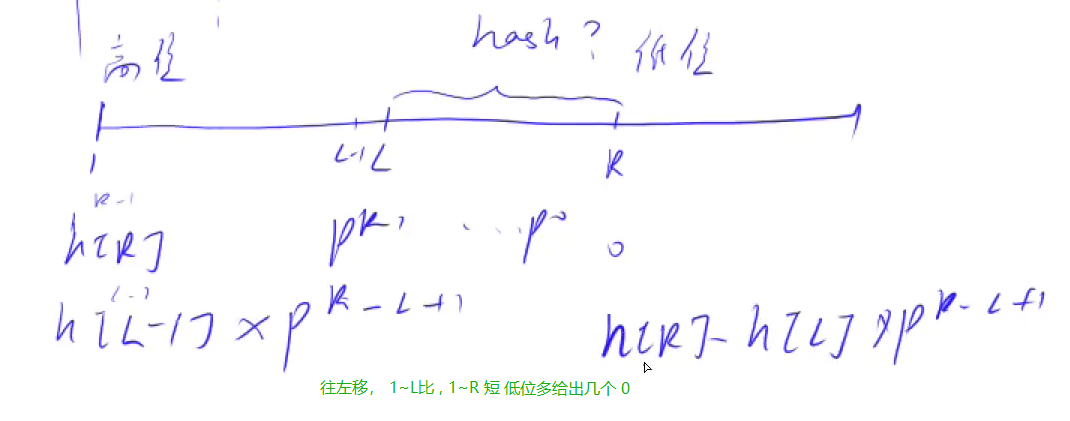 高位 hash? 低位
1 L-1 L R
R-1
h[R] p^{R-1} ... p^0 0
L-1
h[L-1] × p^{R-L+1} h[R]-h[L] × p^{R-L+1}
往左移， 1~L比 , 1~R 短 低位多给出几个 0